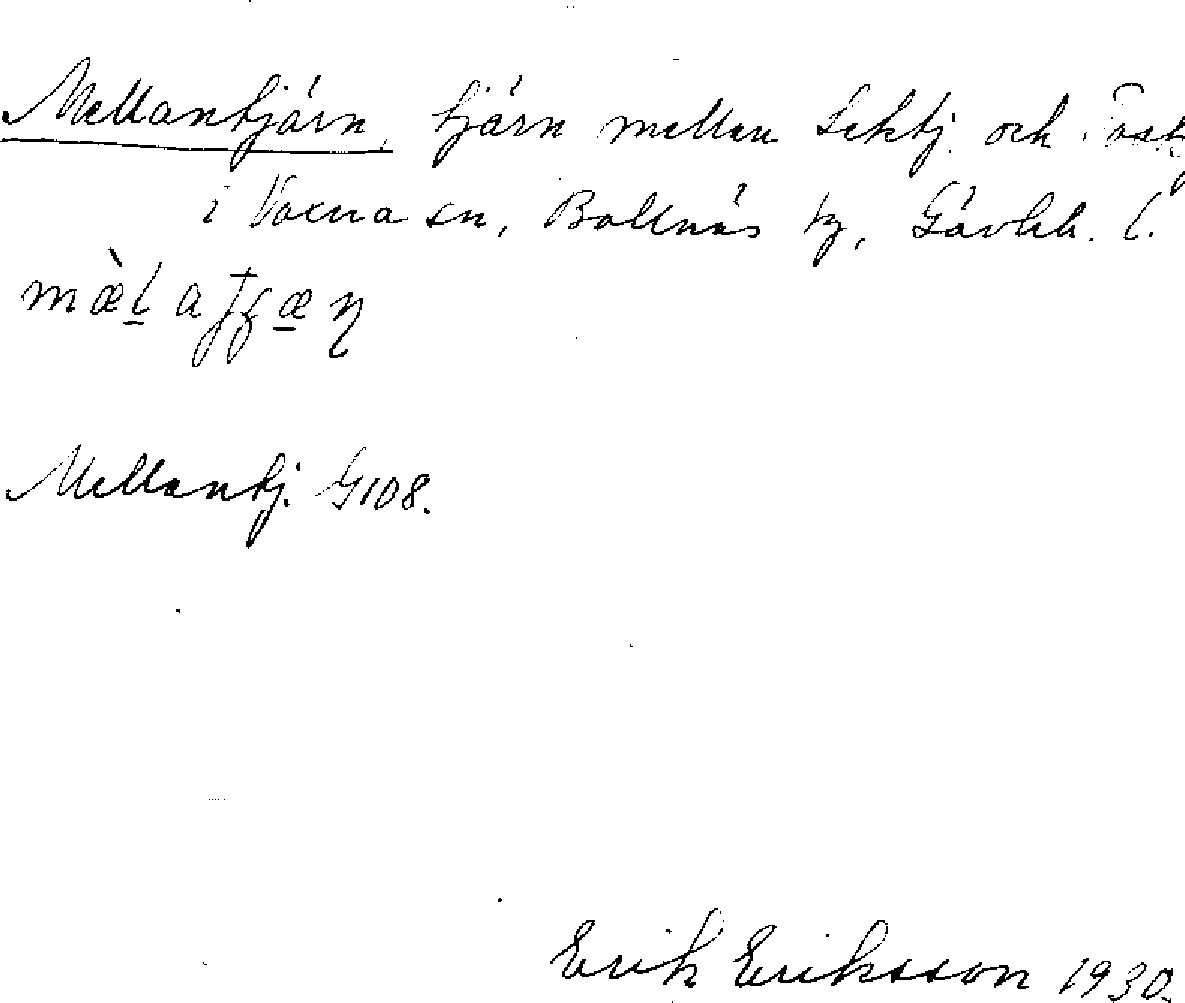 Mellantjärn, tjärn mellan Lektj. och
i Voxna sn, Bollnäs tg, Gävleb. l.
Mellantj. G108.
Erik Eriksson 1930.